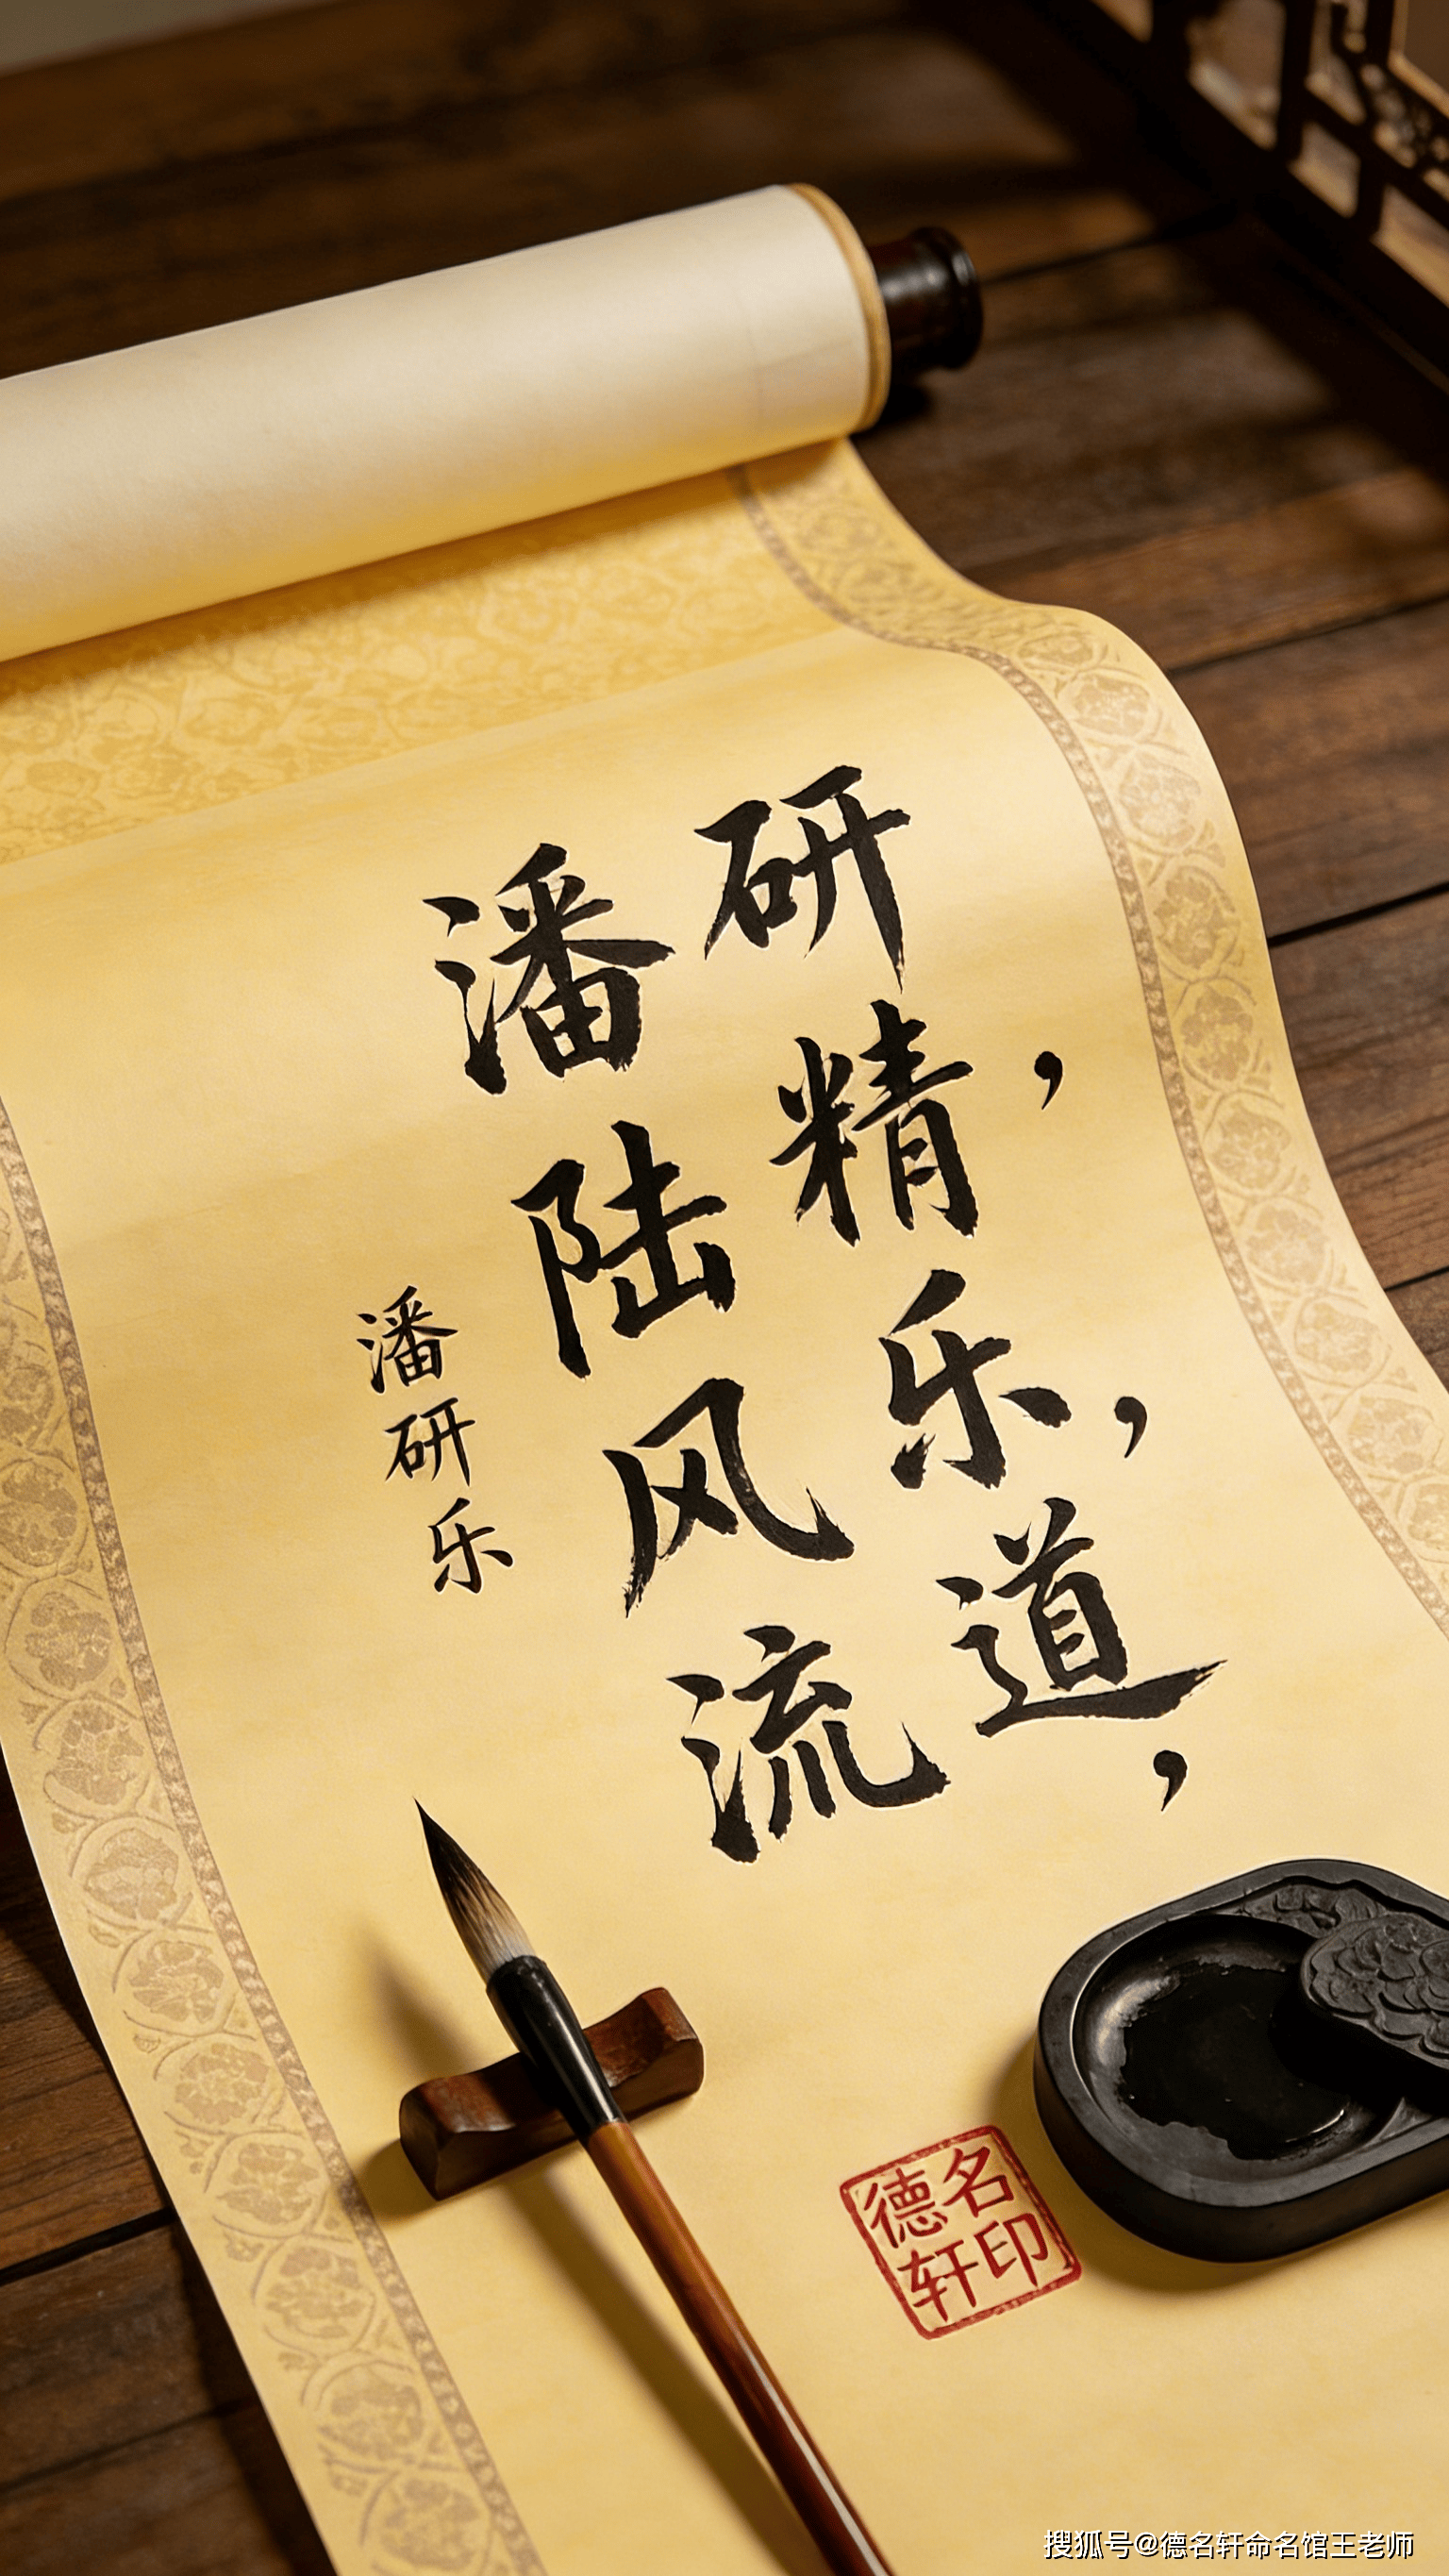 研精，乐，道，
潘陆风流
潘研乐
德名
轩印
搜狐号@德名轩命名馆王老师